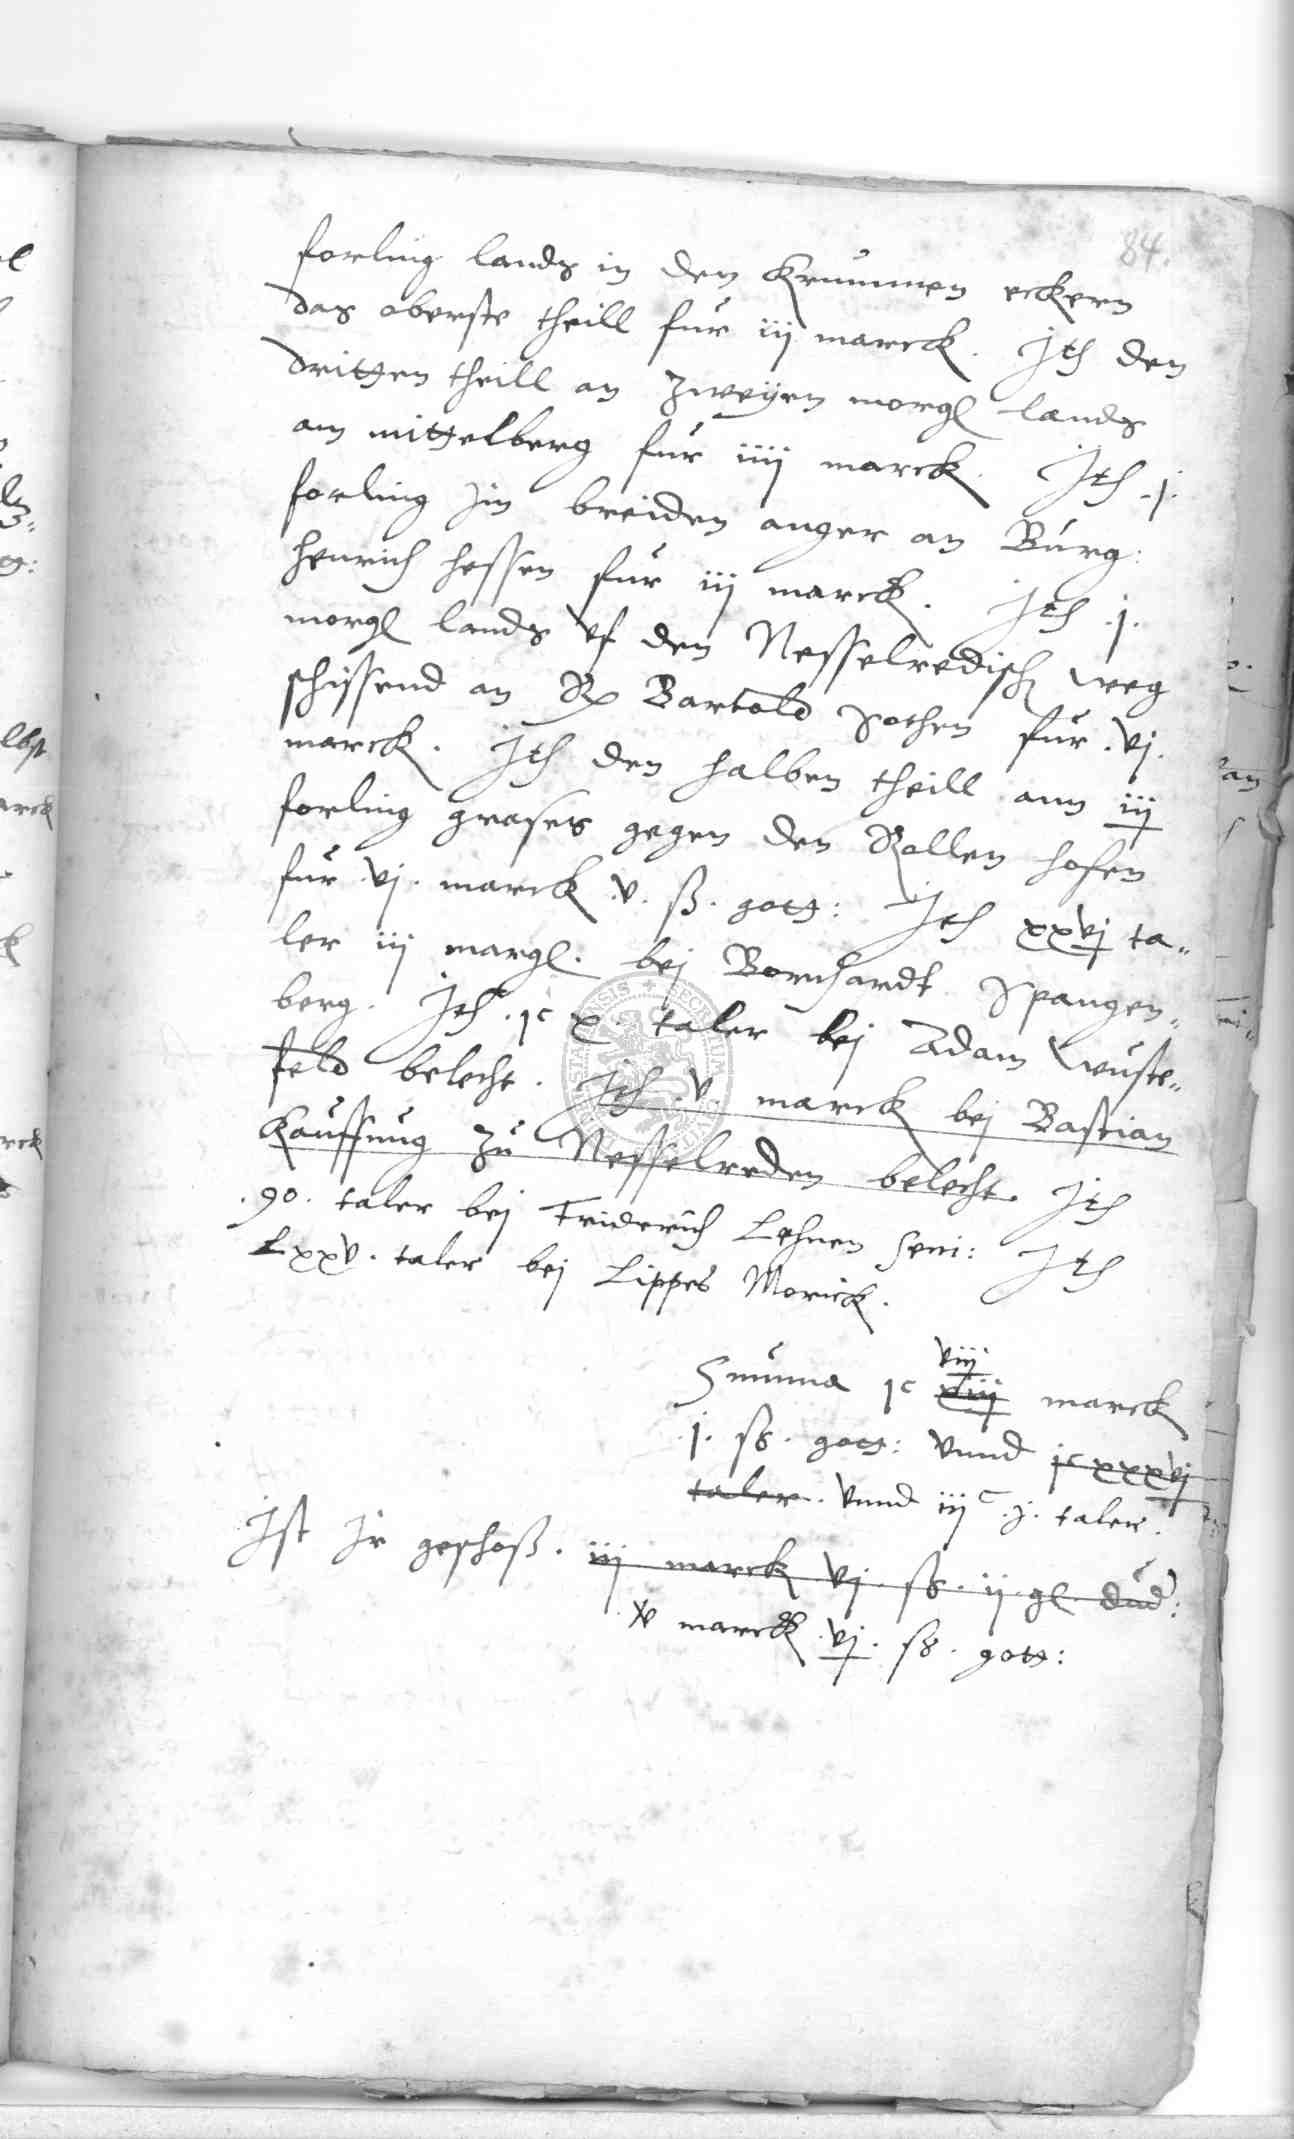 84.
forling lands in den Krummen eckern
das oberste theill fur iij marck. Jth den
dritten theill an zweyen morgl lands
am mittelberg fur iiij marck. Jth .j.
forling im breiden anger an Burg:
henrich hessen fur iij marck. Jth .j.
morgl lands vf den Nesselredisch weg
schissend an Bartold Sothen fur .vj.
marck. Jth den halben theill ann iij
forling grases gegen den Rollen hofen
fur .vj. marck .v. ß. gott: Jth xxvj ta„
ler iij margl. bej Bornhardt Spangen„
berg. Jth .jc x. taler bej Adam Wuste„
feld belecht. Jth .v marck bej Bastian
Kauffung zu Nesselreden belecht. Jth
.90. taler bej Friderich Lehnen seni: Jth
Lxxv. taler bej Lippes Morick.
viij
Summa jc xiij marck
.j. ß. gott: vnnd jc xxxvj
taler. vnnd iijc .j. taler.
Jst Jr geschoß. iij marck vj. ß. ij. gl. dud:
v marck .vj. ß. gott: